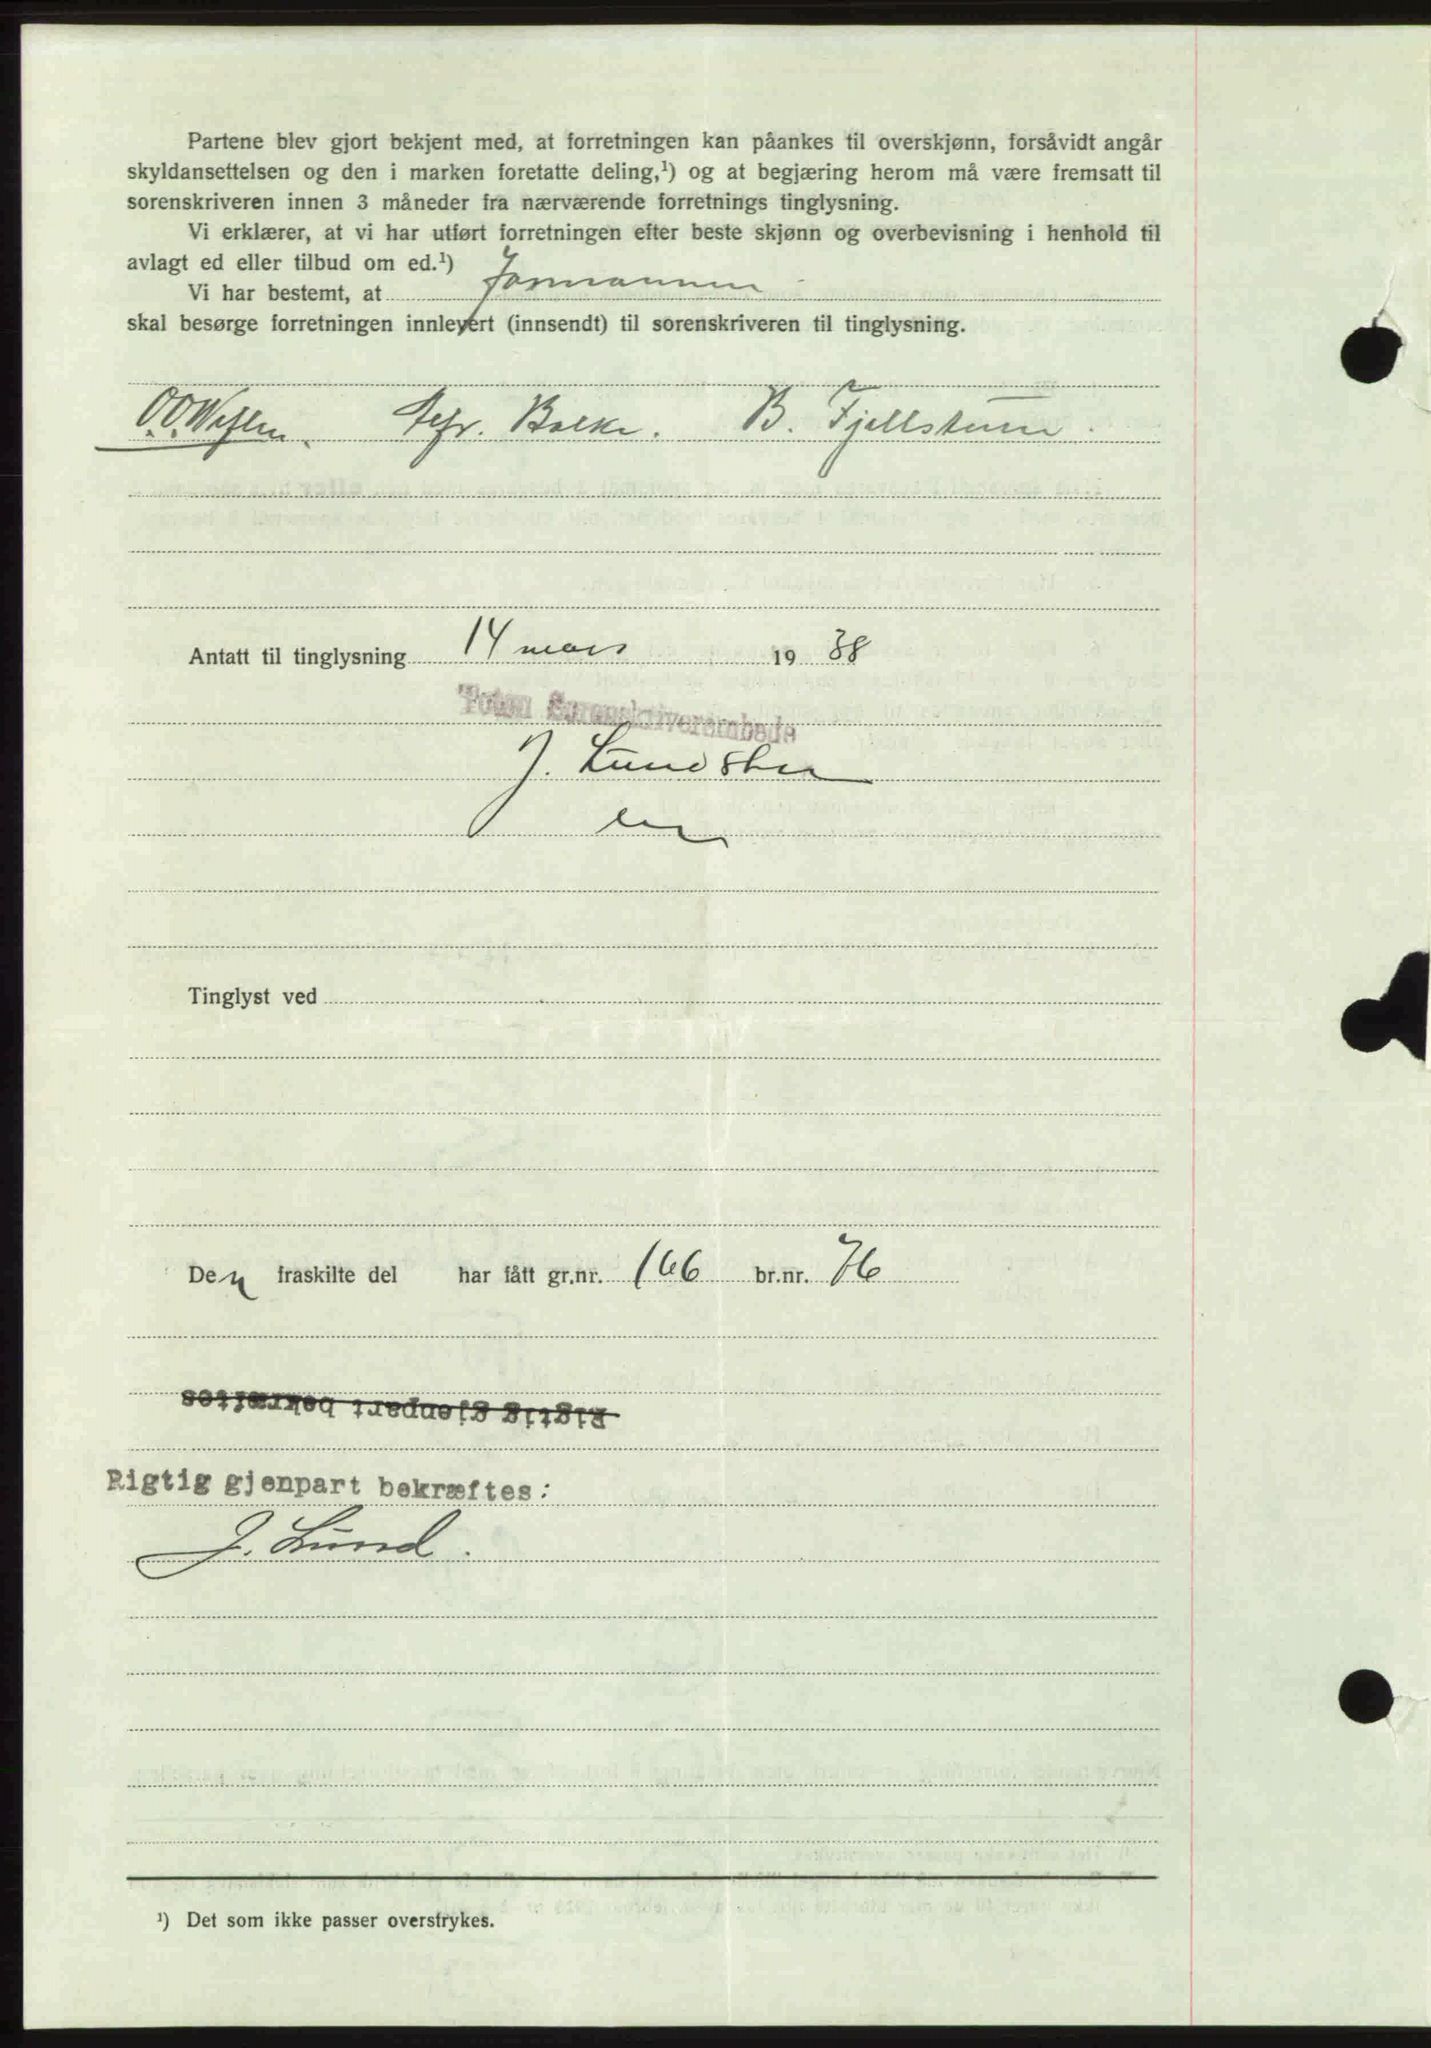 Partene blev gjort bekjent med, at forretningen kan påankes til overskjønn, forsåvidt angår
skyldansettelsen og den i marken foretatte deling,¹) og at begjæring herom må være fremsatt til
sorenskriveren innen 3 måneder fra nærværende forretnings tinglysning.
Vi erklærer, at vi har utført forretningen efter beste skjønn og overbevisning i henhold til
avlagt ed eller tilbud om ed.¹)
Vi har bestemt, at Formannen
skal besørge forretningen innlevert (innsendt) til sorenskriveren til tinglysning.
O.O. Balke. B. Fjellstuen
Antatt til tinglysning 14 mars 19 38
Toten Sorenskriverembede
J. Lund
Tinglyst ved
Den fraskilte del har fått gr.nr. 166 br.nr. 76
Rigtig gjenpart bekræftes
Rigtig gjenpart bekræftes:
J. Lund.
¹) Det som ikke passer overstrykes.